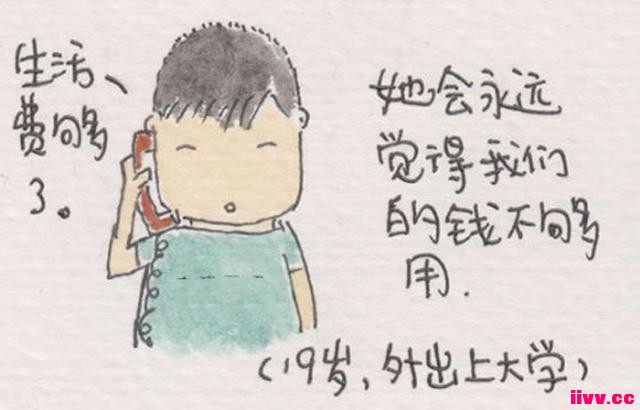 生活、
费够
了。
她会永远
觉得我们
的钱不够
用.
(19岁,外出上大学)
iivv.cc